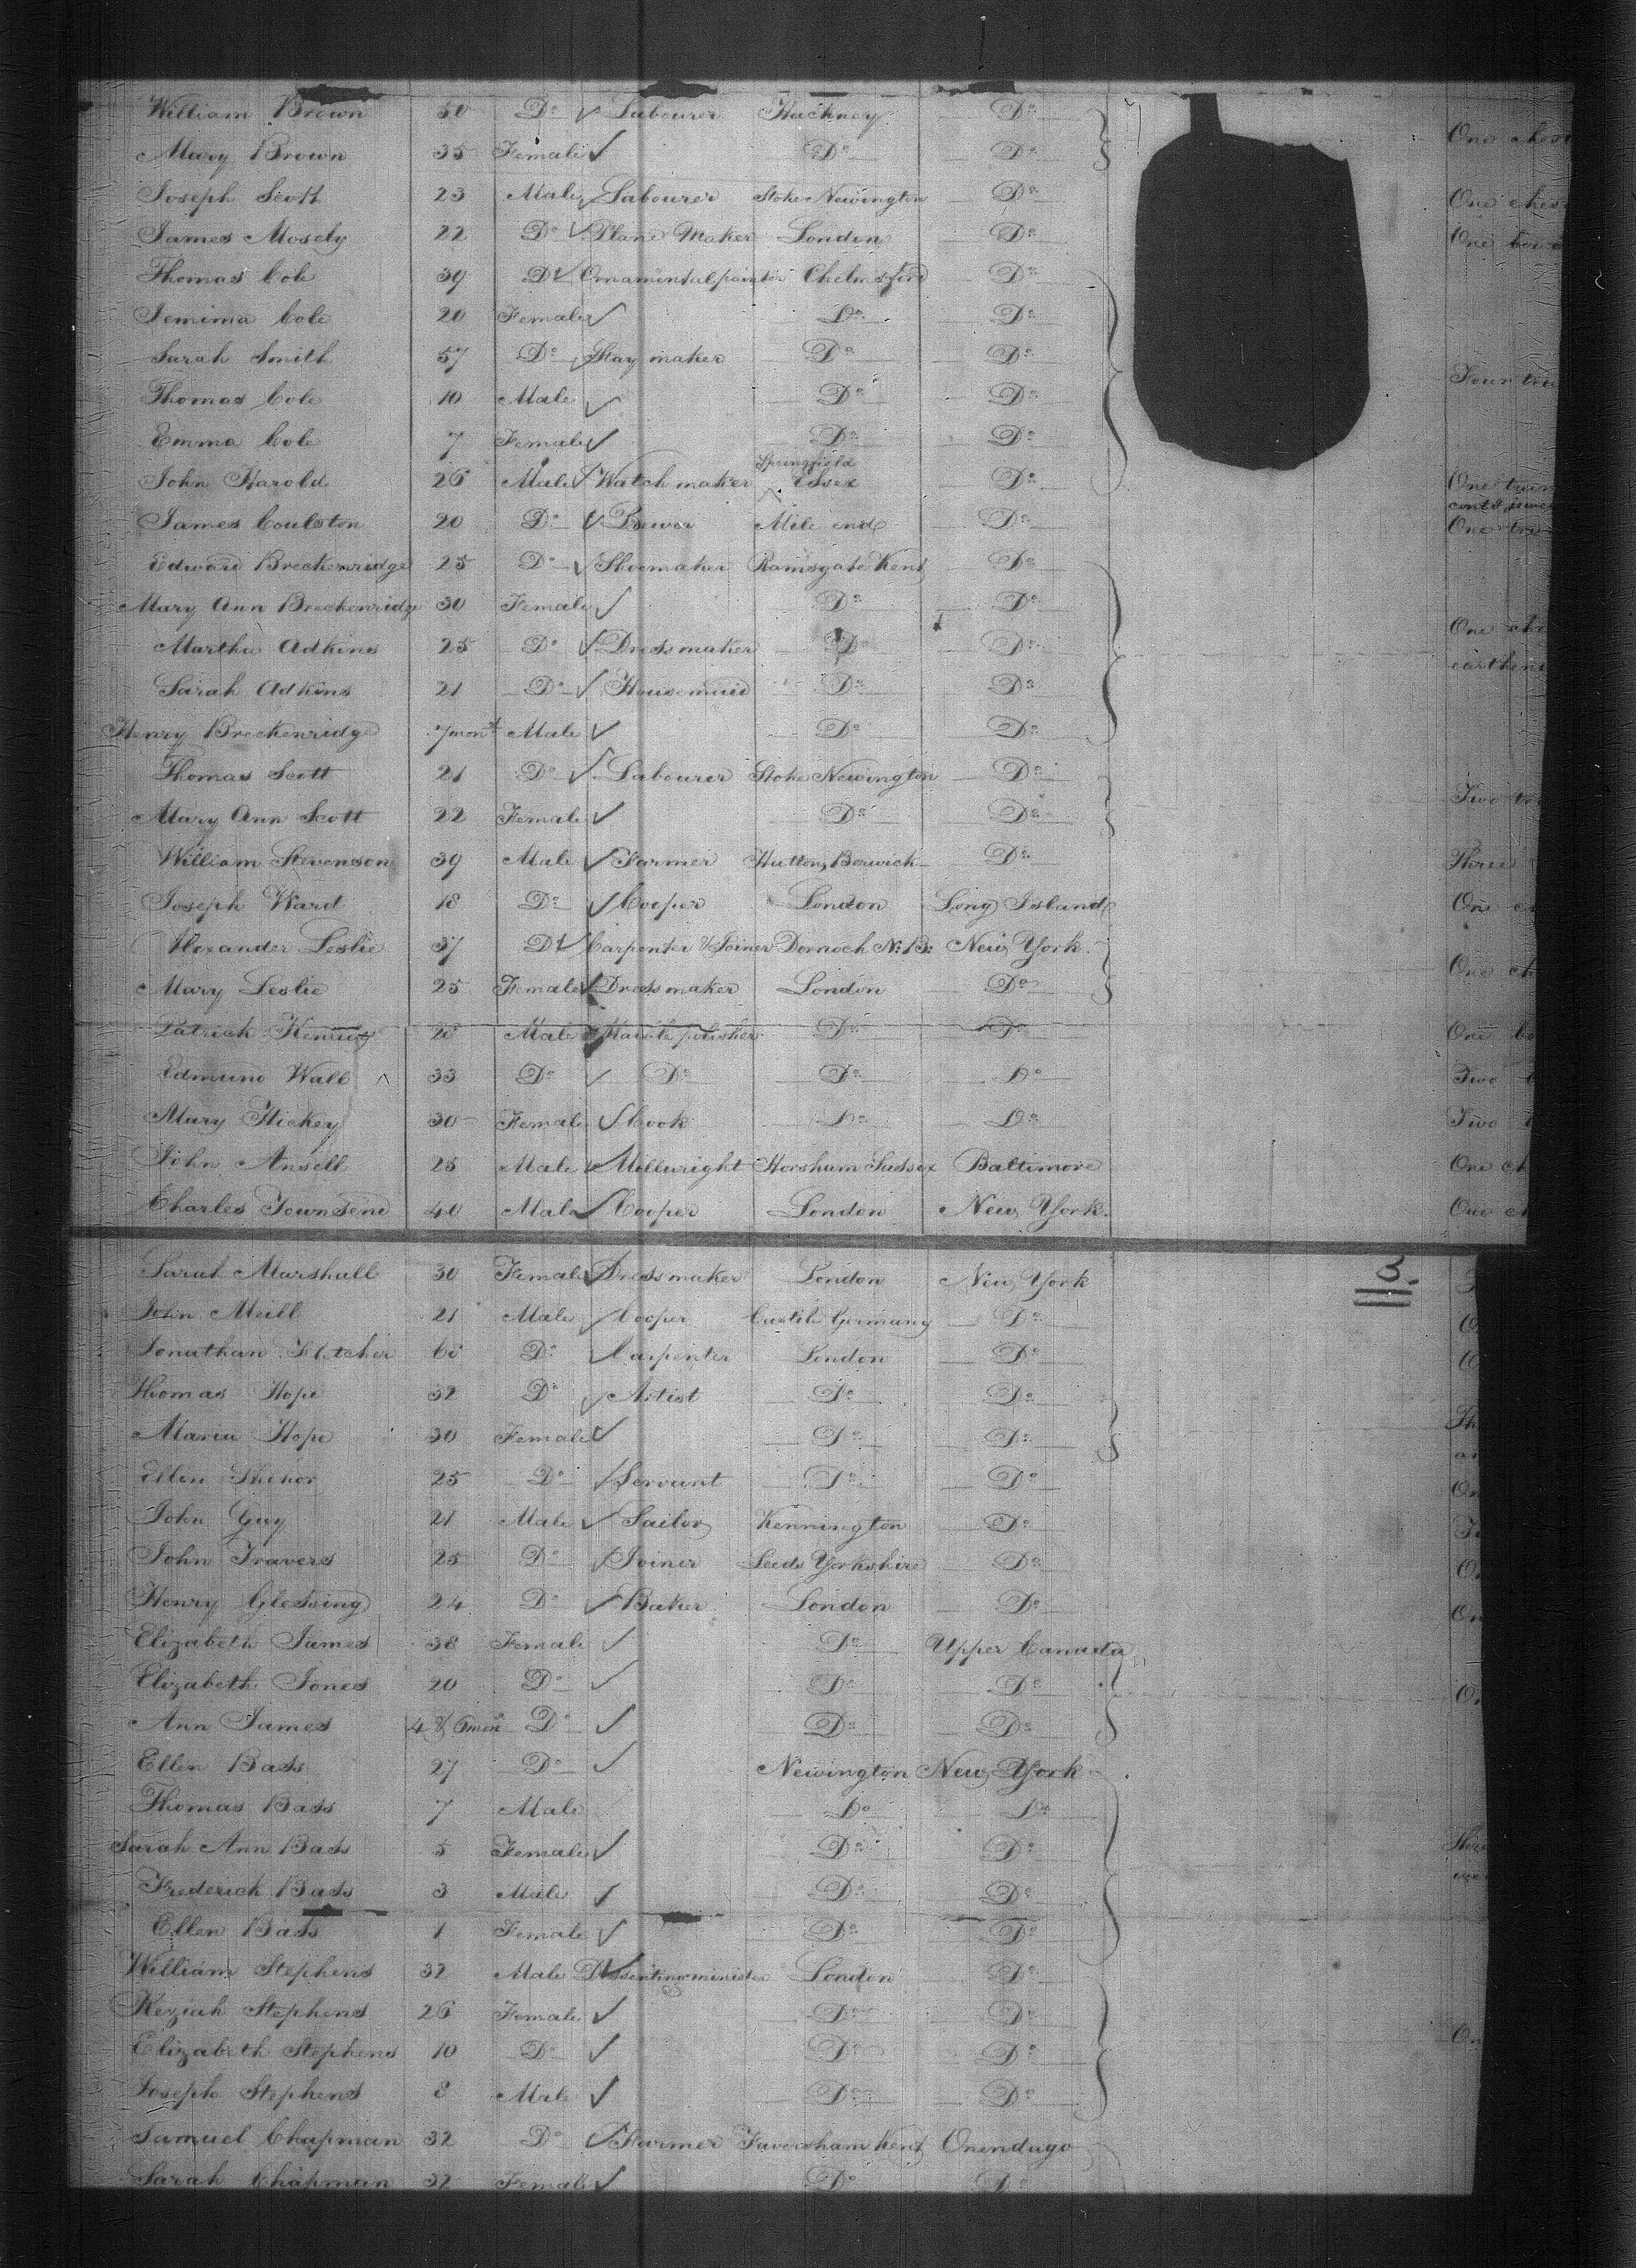 William Brown 30 Do Labourer Hackney Do One chest
Mary Brown 35 Female Do Do
Joseph Scott 23 Male Labourer Stoke Newington Do One chest
James Mosely 22 Do Piano Maker London Do One box
Thomas Cole 39 Do Ornamental painter Chelmsford Do
Jemima Cole 20 Female Do Do
Sarah Smith 57 Do Stay maker Do Do Four tru
Thomas Cole 10 Male Do Do
Emma Cole 7 Female Do Do
John Harold 26 Male Watch maker Springfield Essex Do One trun
contg jewe
James Coulston 20 Do Brewer Mile end Do One tru
Edward Breckenridge 25 Do Shoemaker Ramsgate Kent Do
Mary Ann Breckenridge 30 Female Do Do
Martha Adkins 25 Do Dressmaker Do Do One che
earthen
Sarah Adkins 21 Do Housemaid Do Do
Henry Breckenridge 7 mont Male Do Do
Thomas Scott 21 Do Labourer Stoke Newington Do
Mary Ann Scott 22 Female Do Do Two tru
William Stevenson 39 Male Farmer Hutton, Berwick Do Three
Joseph Ward 18 Do Cooper London Long Island One ch
Alexander Leslie 37 Do Carpenter & Joiner Dornoch N: B: New York
Mary Leslie 25 Female Dressmaker London Do One ch
Patrick Male polisher Do Do One bo
Edmund Wall 33 Do Do Do Do Two
Mary Hickey 30 Female Cook Do Do Two
John Ansell 25 Male Millwright Horsham Sussex Baltimore One ch
Charles Townsend 40 Male Cooper London New York. One ch
3.
Sarah Marshall 30 Female Dressmaker London New York
John Meill 21 Male Cooper Germany Do
Jonathan Fletcher Do Carpenter London Do
Thomas Hope 32 Do Artist Do Do
Maria Hope 30 Female Do Do
Ellen 25 Do Servant Do Do
John Guy 21 Male Sailor Kennington Do
John Travers 25 Do Joiner Leeds Yorkshire Do
Henry Glessing 24 Do Baker London Do
Elizabeth James 38 Female Do Upper Canada
Elizabeth Jones 20 Do Do Do
Ann James 4 & 6 mon Do Do Do
Ellen Bass 27 Do Newington New York
Thomas Bass 7 Male Do Do
Sarah Ann Bass 5 Female Do Do
Frederick Bass 3 Male Do Do
Ellen Bass 1 Female Do Do
William Stephens 32 Male Dissenting minister London Do
Keziah Stephens 26 Female Do Do
Elizabeth Stephens 10 Do Do Do
Joseph Stephens 8 Male Do Do
Samuel Chapman 32 Do Farmer Faversham Kent Onendago
Sarah Chapman 32 Female Do Do